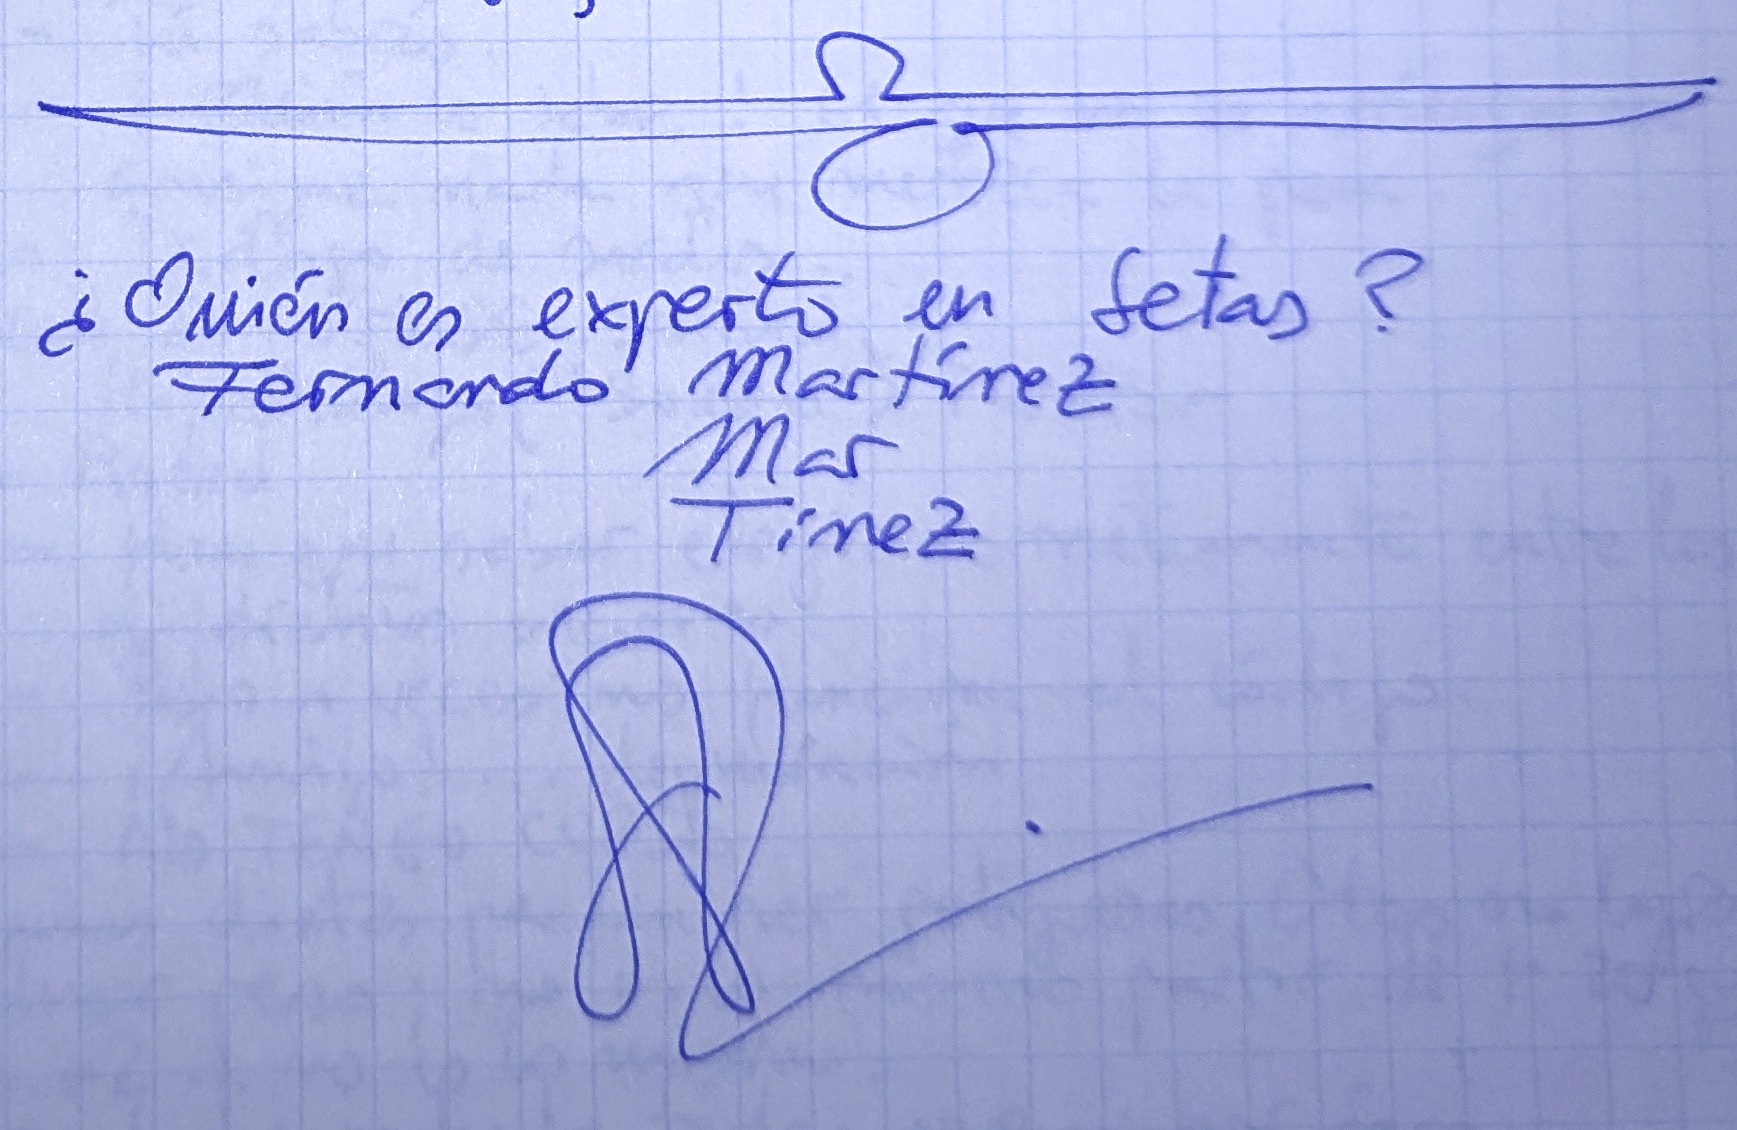 ¿Quién es experto en setas?
Fernando Martínez
Mar
Tinez